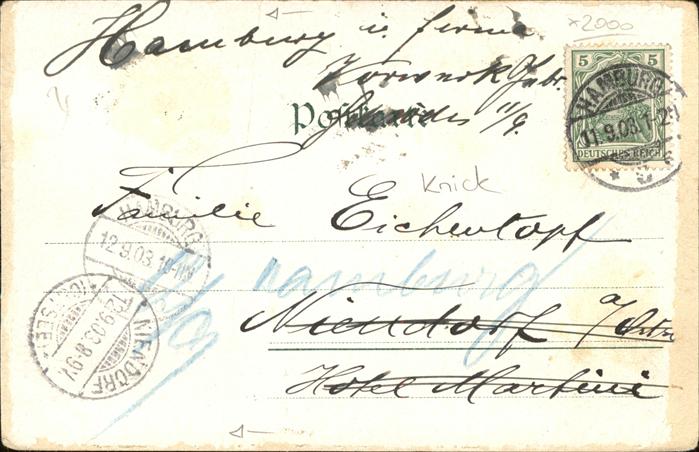 x2000
Hamburg i. firma
Vorwerk Gebr.
11/9.
Postkarte
5 5
DEUTSCHES REICH
HAMBURG
11.9.03.1-2
Knick
Familie Eichentopf
HAMBURG
12.9.03.10-11V
Hamburg
Niendorf a/Ostsee
Hotel Martini
NIENDORF
12.9.03.8-9V
(OSTSEE)